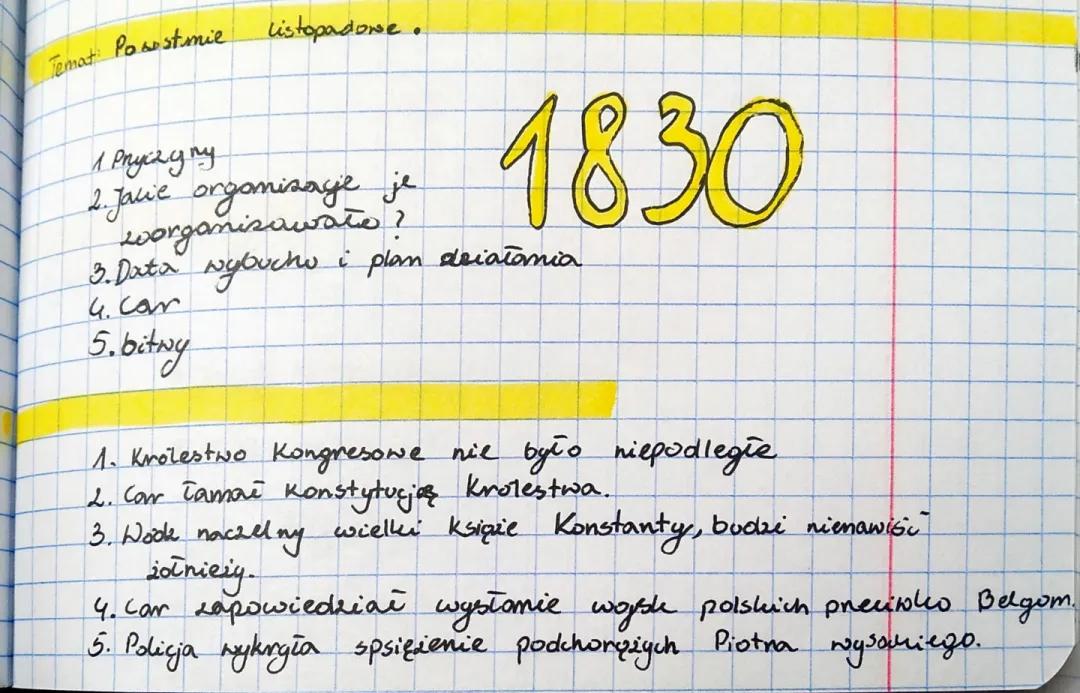 Temat: Powstanie Listopadowe.
1830
1 Przyczyny
2. Jakie organizacje je
zoorganizowało?
3. Data wybuchu i plan działania
4. Car
5. bitwy
1. Królestwo Kongresowe nie było niepodległe
2. Car łamał Konstytucję Królestwa.
3. Wódz naczelny wielki Książe Konstanty, budzi nienawiść
żołnieży.
4. Car zapowiedział wysłanie wojsk polskich przeciwko Belgom.
5. Policja wykryła spsiężenie podchorążych Piotra wysockiego.